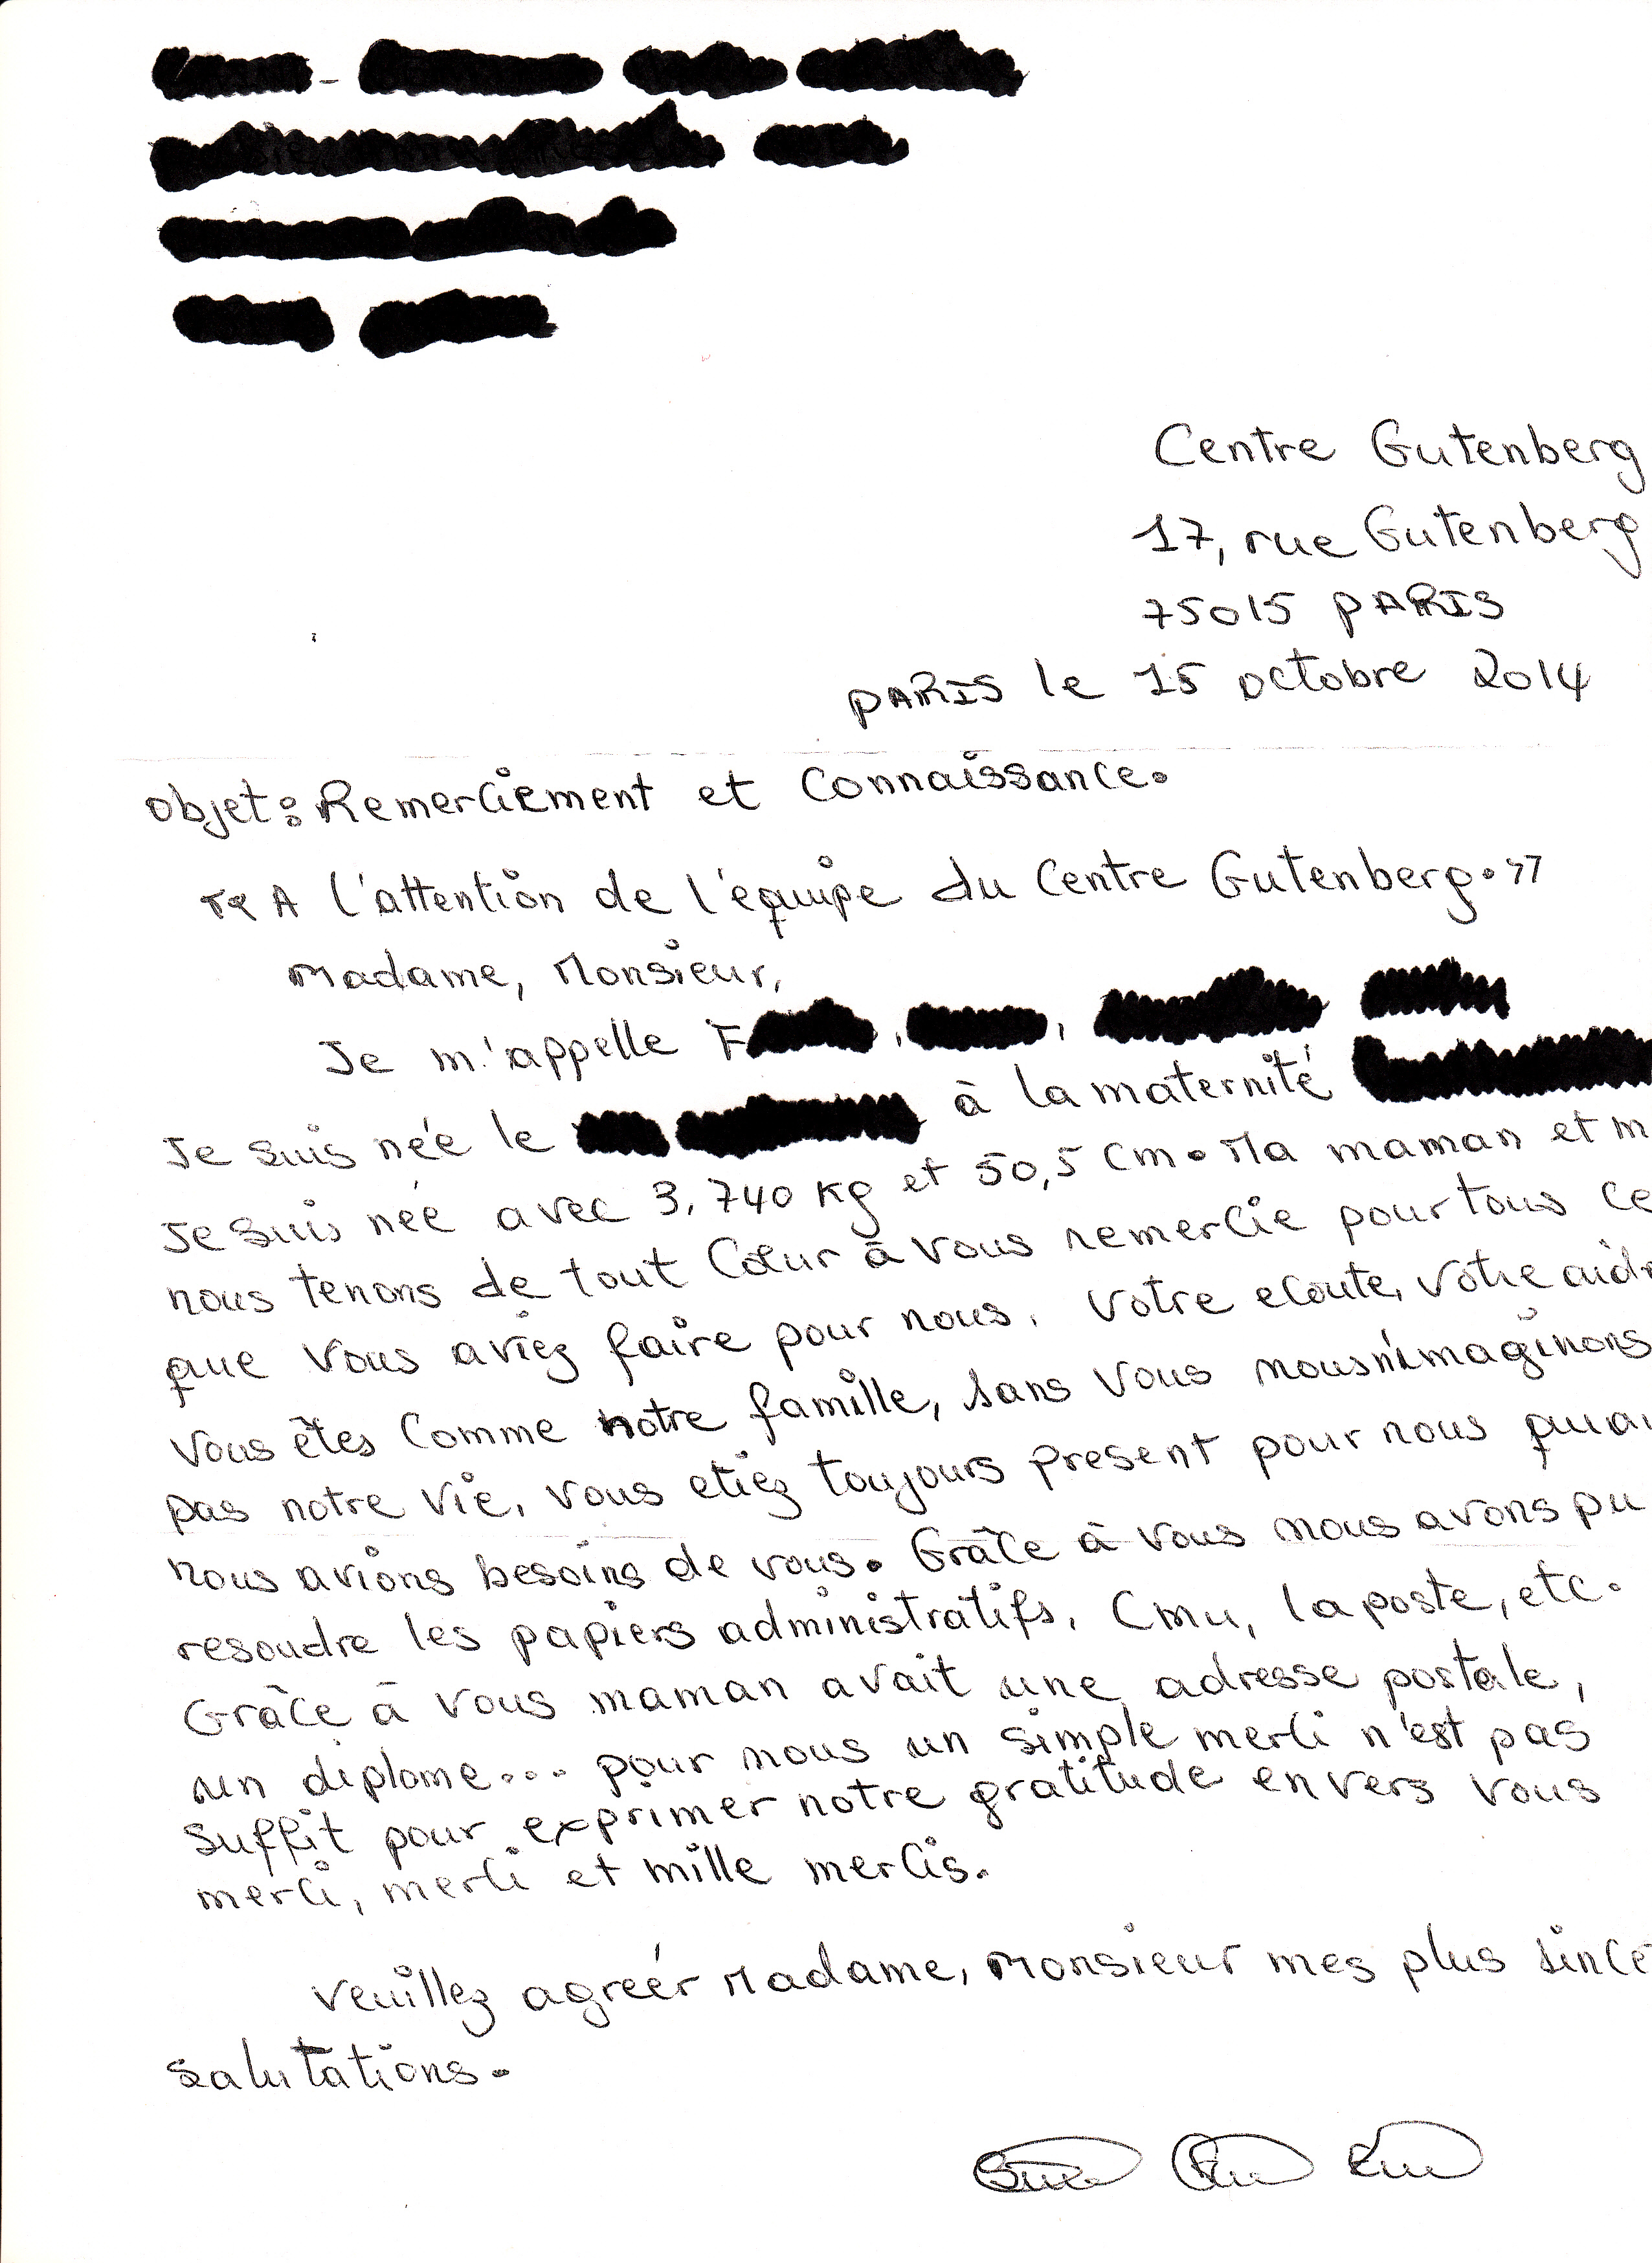 Centre Gutenberg
17, rue Gutenberg
75015 PARIS
PARIS le 15 octobre 2014
Objet : Remerciement et Connaissance.
" A l'attention de l'équipe du Centre Gutenberg. "
Madame, Monsieur,
Je m'appelle F
Je suis née le à la maternité
Je suis née avec 3,740 kg et 50,5 cm. Ma maman et m
nous tenons de tout Cœur à vous remercie pour tous ce
que vous aviez faire pour nous. Votre ecoute, votre aide
vous êtes Comme notre famille, sans vous nous n'imaginons
pas notre vie, vous etiez toujours present pour nous quan
nous avions besoins de vous. Grâce à vous nous avons pu
resoudre les papiers administratifs, Cmu, la poste, etc.
Grâce à vous maman avait une adresse postale,
un diplome... pour nous un simple merci n'est pas
suffit pour exprimer notre gratitude envers vous
merci, merci et mille mercis.
Veuillez agréér Madame, Monsieur mes plus since
salutations.